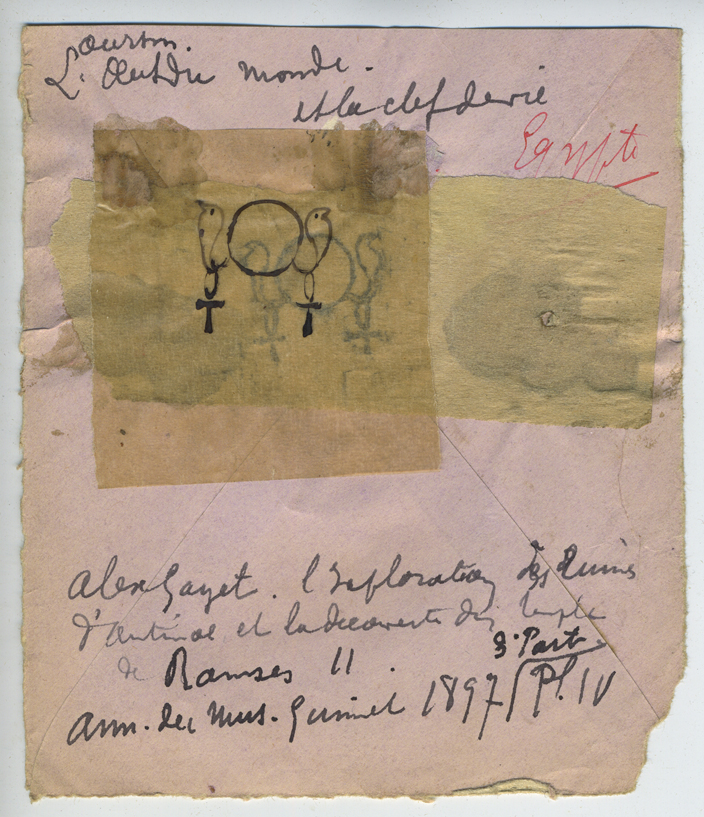 L'Oeuf du monde.
et la clef de vie
Egypte
Alex Gayet. l'Exploration des Ruines
d'Antinoe et la decouverte d'un temple
de Ramses II.
3e Part.
Ann. du Mus. Guimet 1897 Pl. IV